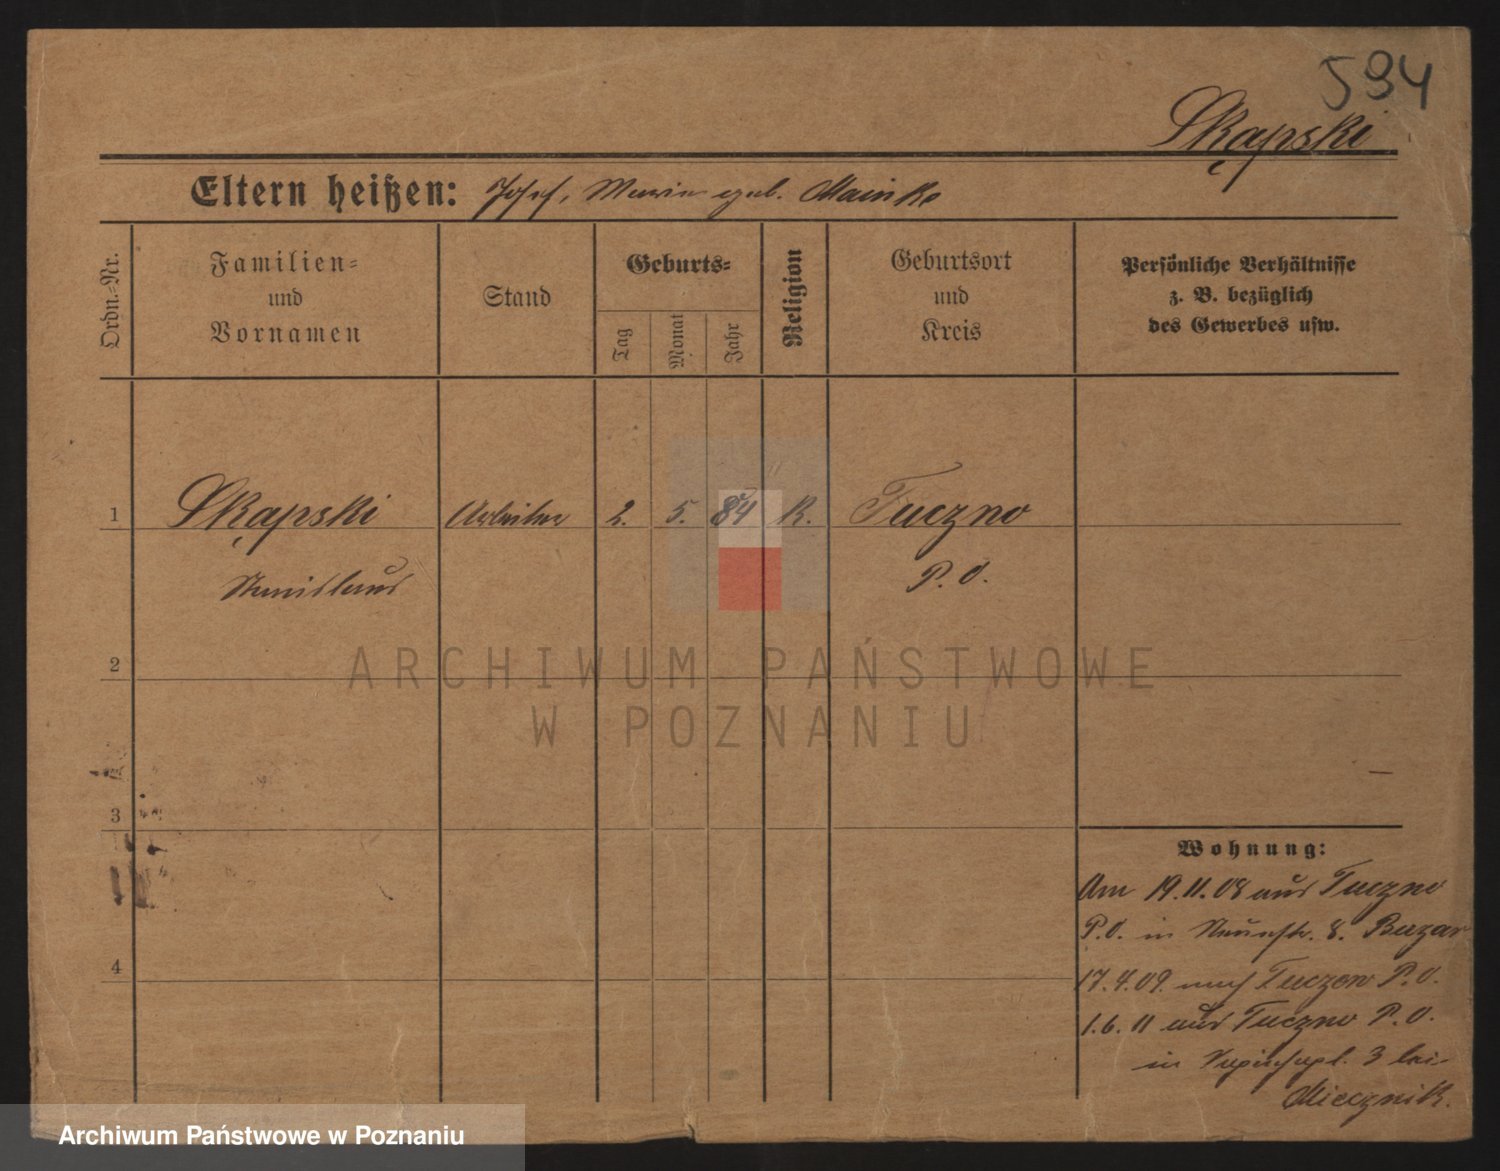 594
Skąpski
Eltern heißen: Josef, Maria geb. Mainka
Ordn.-Nr.
Familien-
und
Vornamen
Stand
Geburts-
Tag
Monat
Jahr
Religion
Geburtsort
und
Kreis
Persönliche Verhältnisse
z. B. bezüglich
des Gewerbes usw.
1 Skąpski Arbeiter 2. 5. 84 K. Tuczno
Stanislaus P. O.
2
ARCHIWUM PAŃSTWOWE
W POZNANIU
3
Wohnung:
Am 19.11.08 aus Tuczno
P.O. in 8. Bazar
4
17.4.09. nach Tuczno P.O.
1.6.11 aus Tuczno P.O.
in 3 bei
Miecznik.
Archiwum Państwowe w Poznaniu